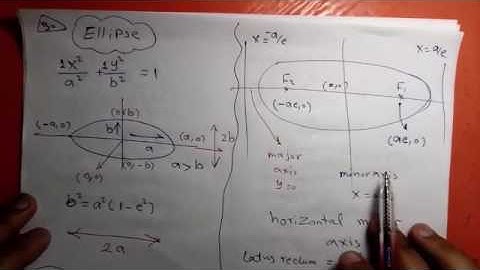 Ellipse
1x²/a² + 1y²/b² = 1
(0,b)
(-a,0)
b
a
(a,0)
2b
(0,-b)
a>b
(0,0)
b² = a²(1-e²)
2a
x = -a/e
x = a/e
F₂
F₁
(-ae,0)
(ae,0)
major
axis
y=0
minor axis
x =
horizontal
axis
Latus rectum =